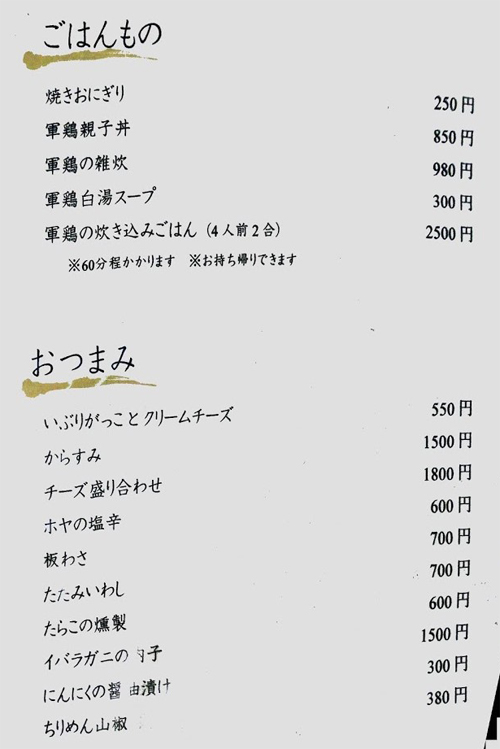 ごはんもの
焼きおにぎり 250円
軍鶏親子丼 850円
軍鶏の雑炊 980円
軍鶏白湯スープ 300円
軍鶏の炊き込みごはん（4人前2合） 2500円
※60分程かかります ※お持ち帰りできます
おつまみ
いぶりがっことクリームチーズ 550円
からすみ 1500円
チーズ盛り合わせ 1800円
ホヤの塩辛 600円
板わさ 700円
たたみいわし 700円
たらこの燻製 600円
イバラガニの 子 1500円
にんにくの醤 由漬け 300円
ちりめん山椒 380円